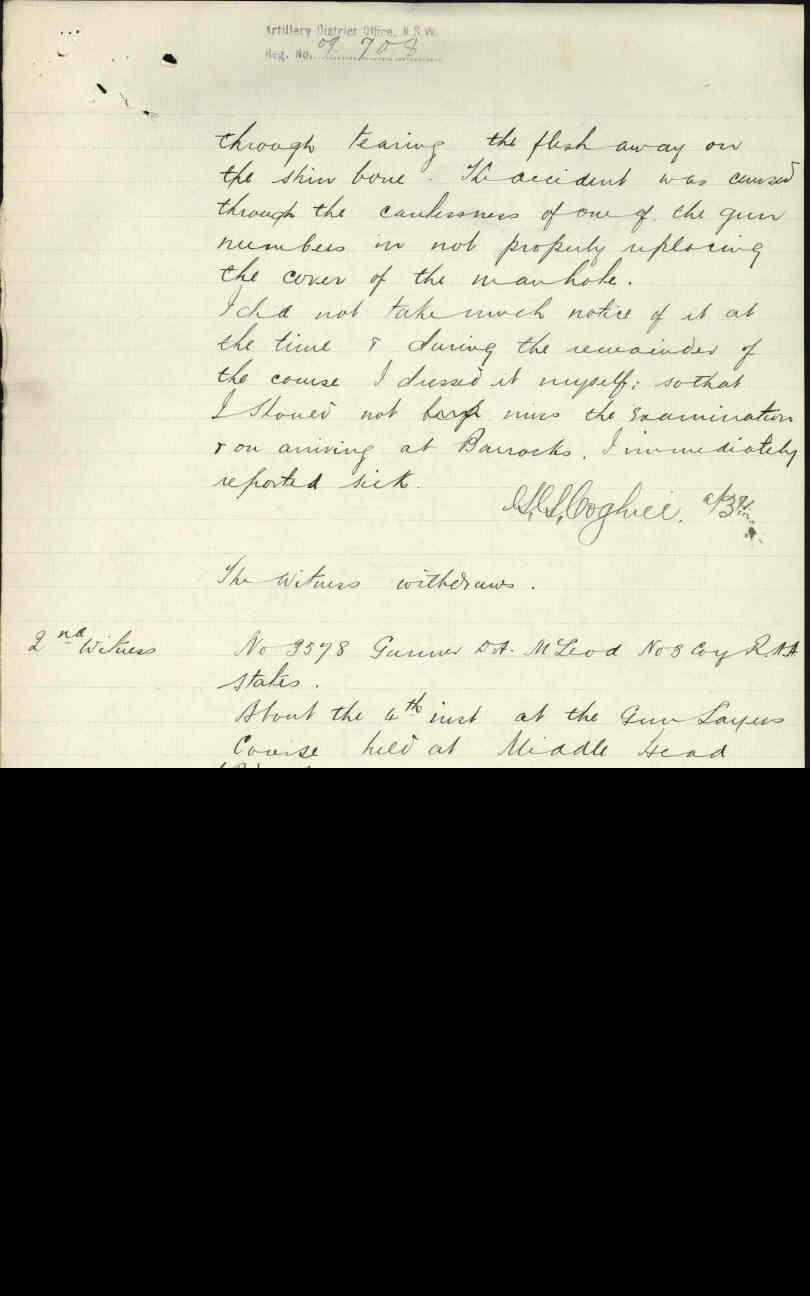 Artillery District Office, N.S.W.
Reg. No. 09 708
through tearing the flesh away on
the shin bone. The accident was caused
through the carelessness of one of the gun
numbers in not properly replacing
the cover of the manhole.
I did not take much notice of it at
the time & during the remainder of
the course I dressed it myself; so that
I should not miss the Examination
& on arriving at Barracks, I immediately
reported sick.
Coghill.
The Witness withdraws.
2nd Witness
No 3578 Gunner D.A. McLeod No 3 Coy R.A.A
states.
About the 4th inst at the Gun Layers
Course held at Middle Head